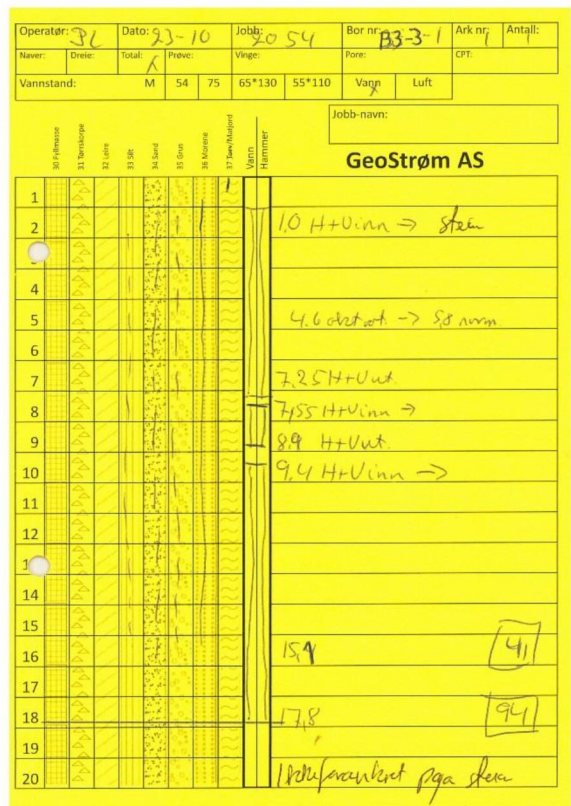 Operatør: JL Dato: 23-10 Jobb: 2054 Bor nr: B3-3-1 Ark nr: 1 Antall: 1
Naver: Dreie: Total: X Prøve: Vinge: Pore: CPT:
Vannstand: M 54 75 65*130 55*110 Vann X Luft
Jobb-navn:
30 Fyllmasse 31 Tørrskorpe 32 Leire 33 Silt 34 Sand 35 Grus 36 Morene 37 Torv/Matjord Vann Hammer
GeoStrøm AS
1
2 1,0 H+Vinn -> stein
4
5 4.6 økt rot. -> 5,8 norm
6
7 7,25 H+Vut.
8 7,55 H+Vinn ->
9 8,9 H+Vut.
10 9,4 H+Vinn ->
11
12
1
14
15
16 15,9 41
17
18 17,8 94
19
20 Ikke forankret pga stein